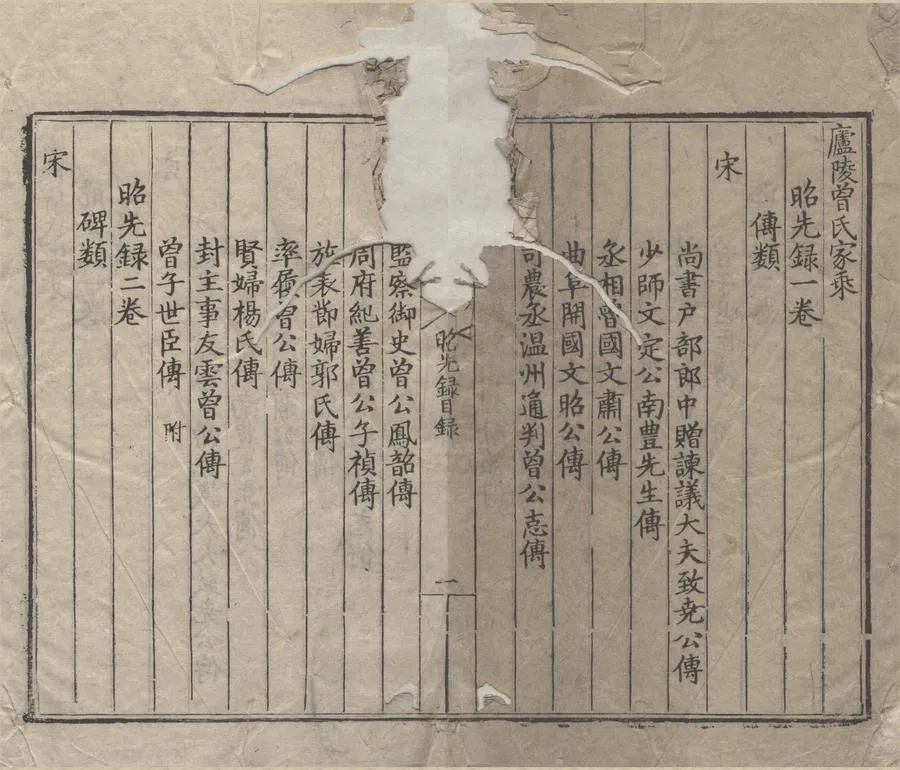 廬陵曾氏家乘
昭先録一卷
傳類
宋
尚書户部郎中贈諫議大夫致尭公傳
少師文定公南豊先生傳
丞相曾國文肅公傳
曲阜開國文昭公傳
司農丞温州通判曾公志傳
昭先録目録
一
監察御史曾公鳳韶傳
周府紀善曾公子禎傳
旌表節婦郭氏傳
率履曾公傳
賢婦楊氏傳
封主事友雲曾公傳
曾子世臣傳 附
昭先録二卷
碑類
宋